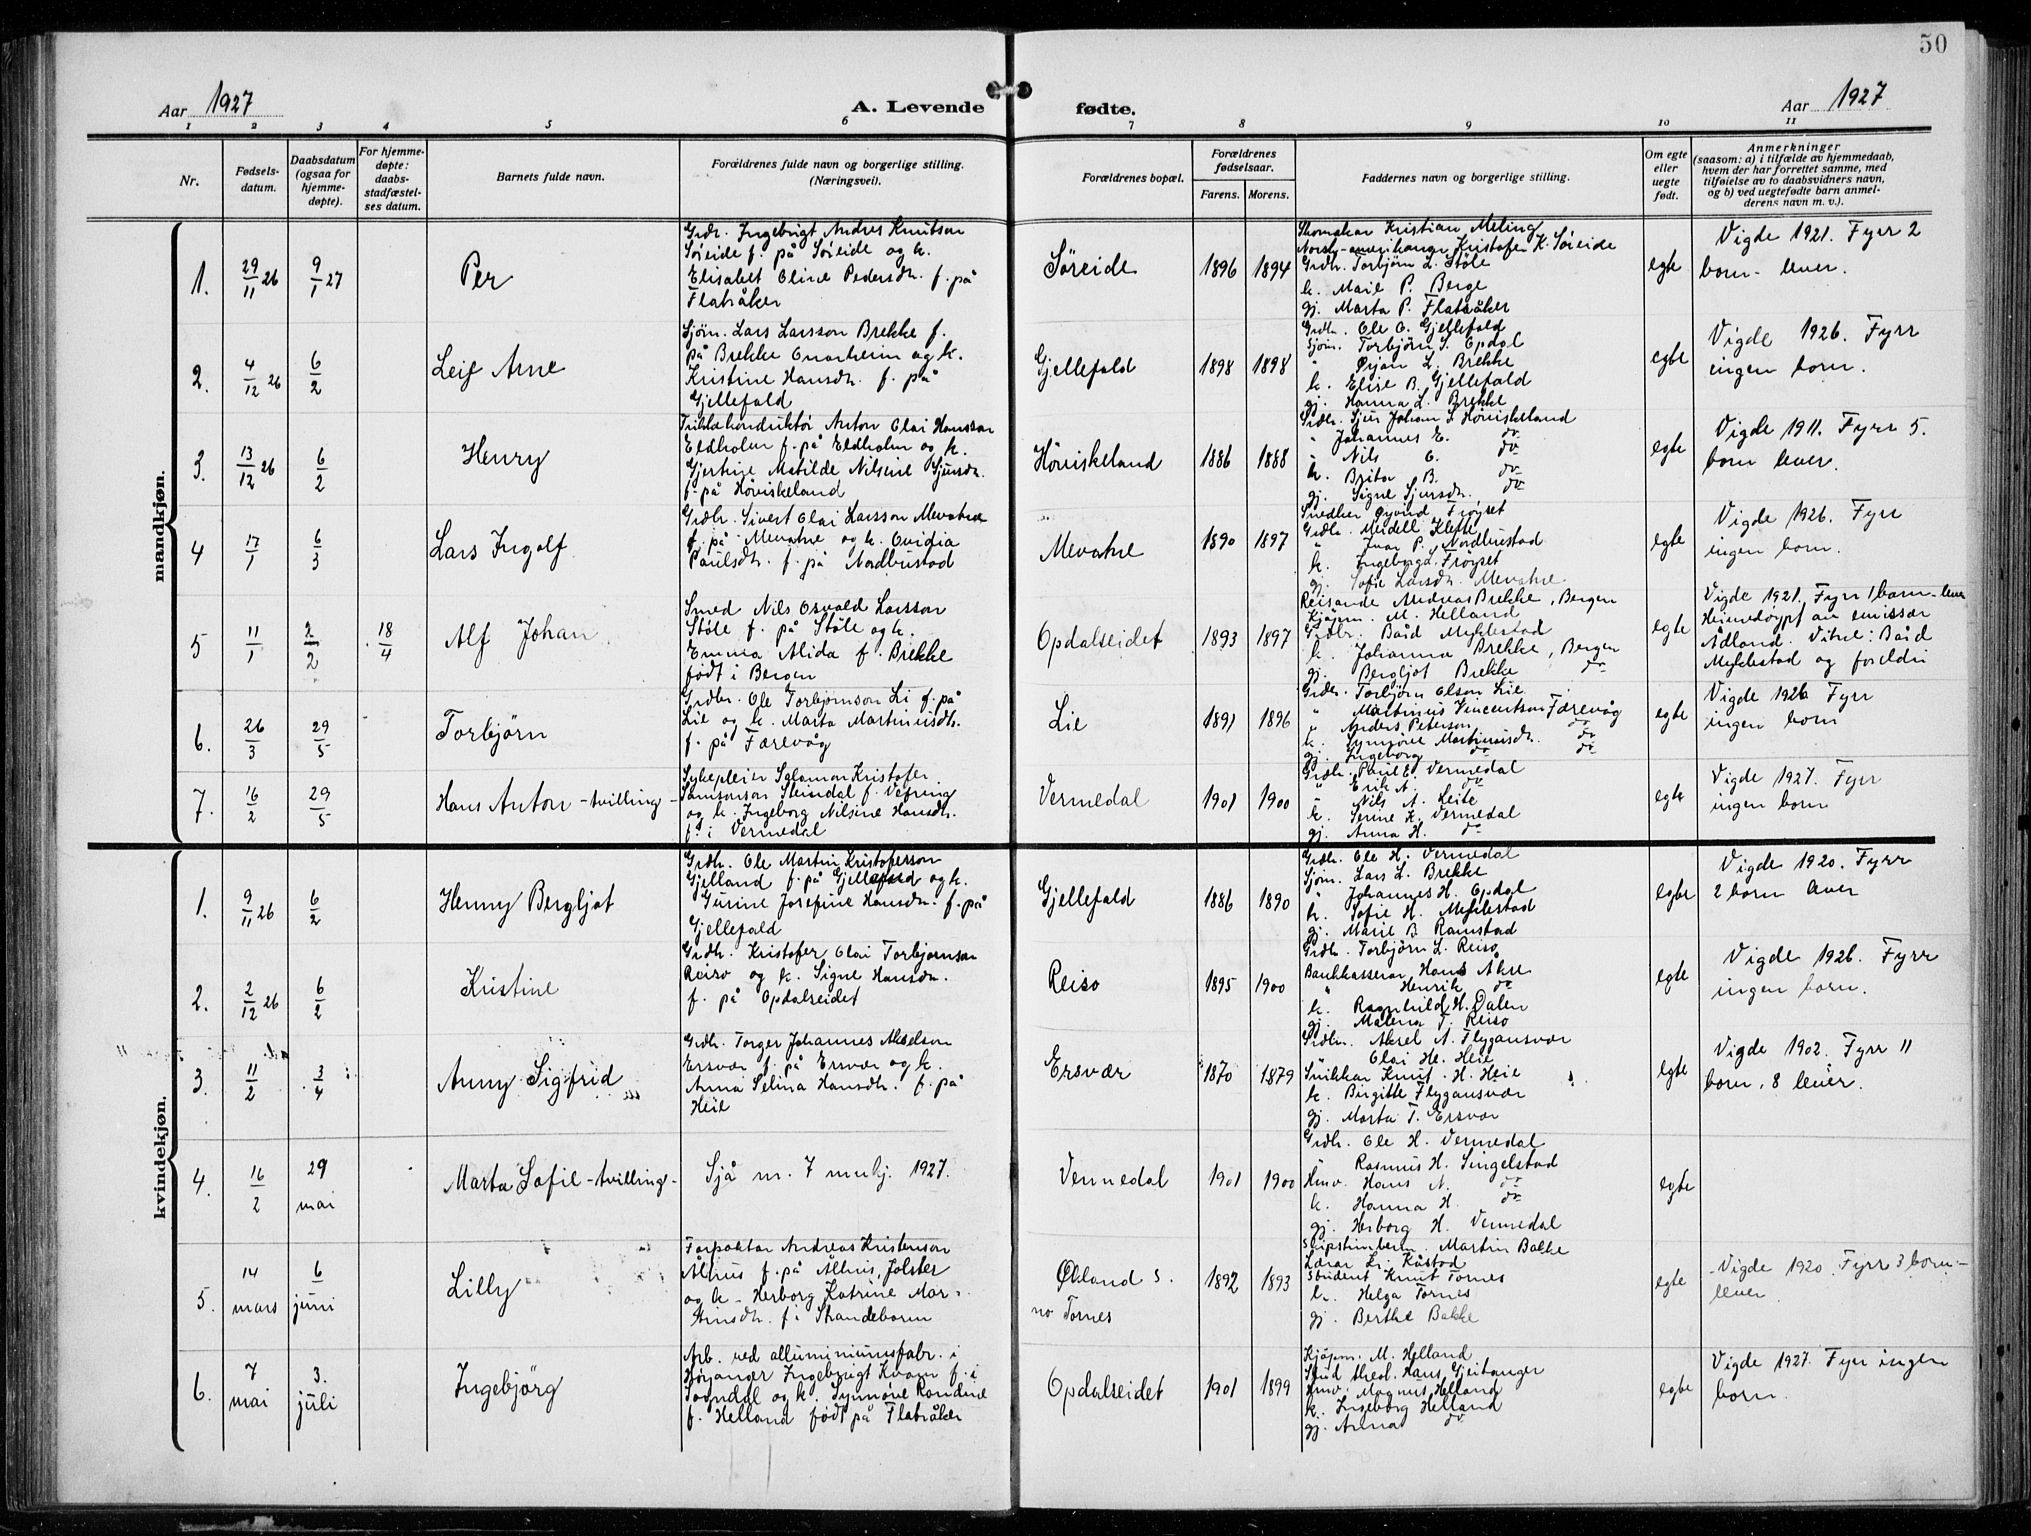 50
Aar 1927
A. Levende fødte.
Aar 1927
1 2 3 4 5 6 7 8 9 10 11
Nr.
Fødsels-
datum.
Daabsdatum
(ogsaa for
hjemme-
døpte).
For hjemme-
døpte:
daabs-
stadfæstel-
ses datum.
Barnets fulde navn.
Forældrenes fulde navn og borgerlige stilling.
(Næringsvei).
Forældrenes bopæl.
Forældrenes
fødselsaar.
Farens. Morens.
Faddernes navn og borgerlige stilling.
Om egte
eller
uegte
født.
Anmerkninger
(saasom: a) i tilfælde av hjemmedaab,
hvem der har forrettet samme, med
tilføielse av to daabsvidners navn,
og b) ved uegtefødte barn anmel-
derens navn m. v.).
mandkjøn.
1.
29/11 26
9/1 27
Per
Grdr. Ingebrigt Andres Knutson
Søreide f. på Søreide og k.
Elisabet Oline Pedersdtr. f. på
Flatråker
Søreide
1896
1894
Skomakar Kristian Meling
Norsk-amerikanar Kristofer K. Søreide
Grdbr. Torbjørn L. Støle
k. Marie P. Berge
gj. Marta P. Flatråker
egte
Vigde 1921. Fyrr 2
born - lever.
2.
4/12 26
6/2
Leif Arne
Sjøm. Lars Larsson Brekke f.
på Brekke Onarheim og k.
Kristine Hansdtr. f. på
Gjellefald
Gjellefald
1898
1898
Grdbr. Ole O. Gjellefald
Sjøm. Torbjørn S. Opdal
" Ørjan L. Brekke
k. Elise B. Gjellefald
gj. Hanna L. Brekke
egte
Vigde 1926. Fyrr
ingen born.
3.
13/12 26
6/2
Henry
Trikkekonduktør Anton Olai Hansson
Eldholm f. på Eldholm og k.
Gjertine Matilde Nilsine Sjursdtr.
f. på Høviskeland
Høviskeland
1886
1888
Grdbr. Sjur Johan S. Høviskeland
" Johannes E. do
" Nils O. do
k. Brita B. do
gj. Signe Sjursdtr. do
egte
Vigde 1911. Fyrr 5.
born lever.
4
17/1
6/3
Lars Ingolf
Grdbr. Sivert Olai Larsson Mevatne
f. på Mevatne og k. Ovidia
Paulsdtr. f. på Nordbustad
Mevatne
1890
1897
Snedker Øyvind Frøyset
Grdbr. Meidell Kleppe
" Ivar P. Nordbustad
k. Ingeborga Frøyset
gj. Sofie Larsdtr. Mevatne
egte
Vigde 1926. Fyrr
ingen born.
5
11/1
2/2
18/4
Alf Johan
Smed Nils Osvald Larsson
Støle f. på Støle og k.
Emma Alida f. Brekke
født i Bergen
Opdalseidet
1893
1897
Reisande Andreas Brekke, Bergen
Kjøpm. M. Helland
Grdbr. Bård Myklestad
k. Johanna Brekke, Bergen
gj. Bergljot Brekke do
egte
Vigde 1921. Fyrr 1 born - lever
Heimedøypt av emissær
Ådland. Vitne: Bård
Myklestad og foreldri
6.
26/3
29/5
Torbjørn
Grdbr. Ole Torbjørnson Li f. på
Lie og k. Marta Martinusdtr.
f. på Færevåg
Lie
1891
1896
Grdbr. Torbjørn Olson Lie
" Martinus Vincentson Færevåg
" Anders Peterson do
k. Synnøve Martinusdtr. do
gj. Ingeborg do do
egte
Vigde 1926 Fyrr
ingen born
7.
16/2
29/5
Hans Anton - tvilling -
Sykepleier Salamon Kristofer
Samsonson Steindal f. Vefring
og k. Ingeborg Nilsine Hansdtr.
f. i Vermedal
Vermedal
1901
1900
Grdbr. Paul E. Vermedal
" Erik A. do
" Nils A. Leite
k. Serine K. Vermedal
gj. Anna H. do
egte
Vigde 1927. Fyrr
ingen born
kvindekjøn.
1.
9/11 26
6/2
Henny Bergljot
Grdbr. Ole Martin Kristoferson
Gjelland f. på Gjellefald og k.
Gurine Josefine Hansdtr. f. på
Gjellefald
Gjellefald
1886
1890
Grdbr. Ole H. Vermedal
Sjøm. Lars L. Brekke
" Johannes H. Opdal
k. Sofie H. Myklestad
gj. Marie B. Ramstad
egte
Vigde 1920. Fyrr
2 born lever
2.
2/12 26
6/2
Kristine
Grdbr. Kristofer Olai Torbjørnson
Reiso og k. Signe Hansdtr.
f. på Opdalseidet
Reiso
1895
1900
Grdbr. Torbjørn L. Reiso
Bankkasserar Hans Åkre
" Henrik do
k. Ragnhild H. Dalen
gj. Malena T. Reiso
egte
Vigde 1926. Fyrr
ingen born.
3.
11/2
3/4
Anny Sigfrid
Grdbr. Torger Johannes Akselson
Ersvær f. på Ersvær og k.
Anna Selina Hansdtr. f. på
Heie
Ersvær
1870
1879
Grdbr. Aksel A. Flygansvær
Olai H. Heie
Snikkar Knut H. Heie
k. Birgitte Flygansvær
gj. Marta T. Ersvær
egte
Vigde 1902. Fyrr 11
born, 8 lever.
4.
16/2
29
mai
Marta Sofie - tvilling -
Sjå nr. 7 mankj. 1927.
Vermedal
1901
1900
Grdbr. Ole H. Vermedal
Rasmus H. Singelstad
Ymv. Hans A. do
k. Hanna H. do
gj. Herborg H. Vermedal
egte
5.
14
mars
6
juni
Lilly
Forpaktar Andreas Kristenson
Ålhus f. på Ålhus, Jølster
og k. Herborg Katrine Mar-
tinsdtr. f. i Strandebarm
Økland s.
no Tornes
1892
1893
Skipstimberm. Martin Bakke
Lærar L. Råstad
Student Knut Tornes
k. Helga Tornes
gj. Berthe Bakke
egte
Vigde 1920. Fyrr 3 born -
lever.
6.
7
mai
3.
juli
Ingebjørg
Arb. ved alluminiumsfabr. i
Høyanger Ingebrigt Kvam f. i
Sogndal og k. Synnøve Randine
f. Helland født på Flatråker
Opdalseidet
1901
1899
Kjøpm. M. Helland
Stud theol. Hans Gjeitanger
Ymv. Magnus Helland
k. Ingeborg Helland
gj. Anna do
egte
Vigde 1927. Fyrr ingen
born.